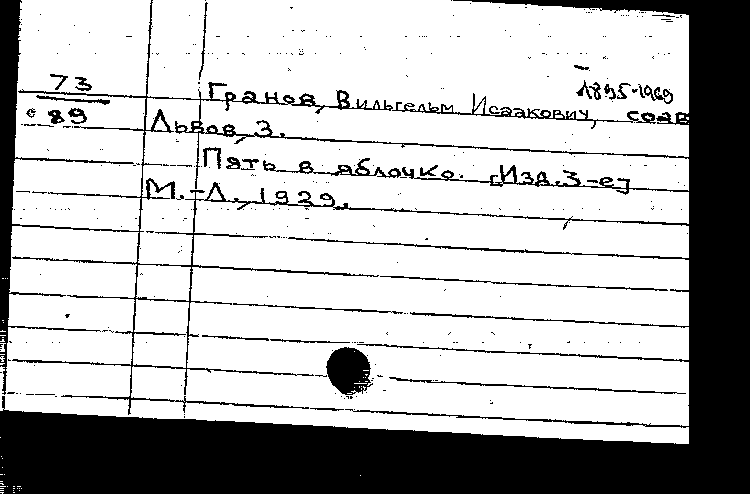 1895-1969
73
Гранов, Вильгельм Исаакович, соав
с 89
Львов, З.
Пять в яблочко. [Изд. 3-е]
М.-Л., 1929.